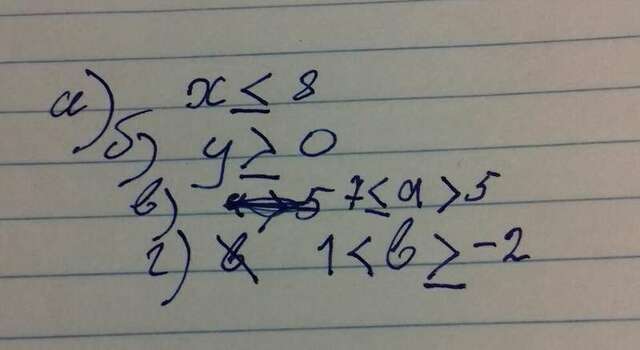 а) x ≤ 8
б) y ≥ 0
в) 7 ≤ a > 5
г) 1 < b ≥ -2